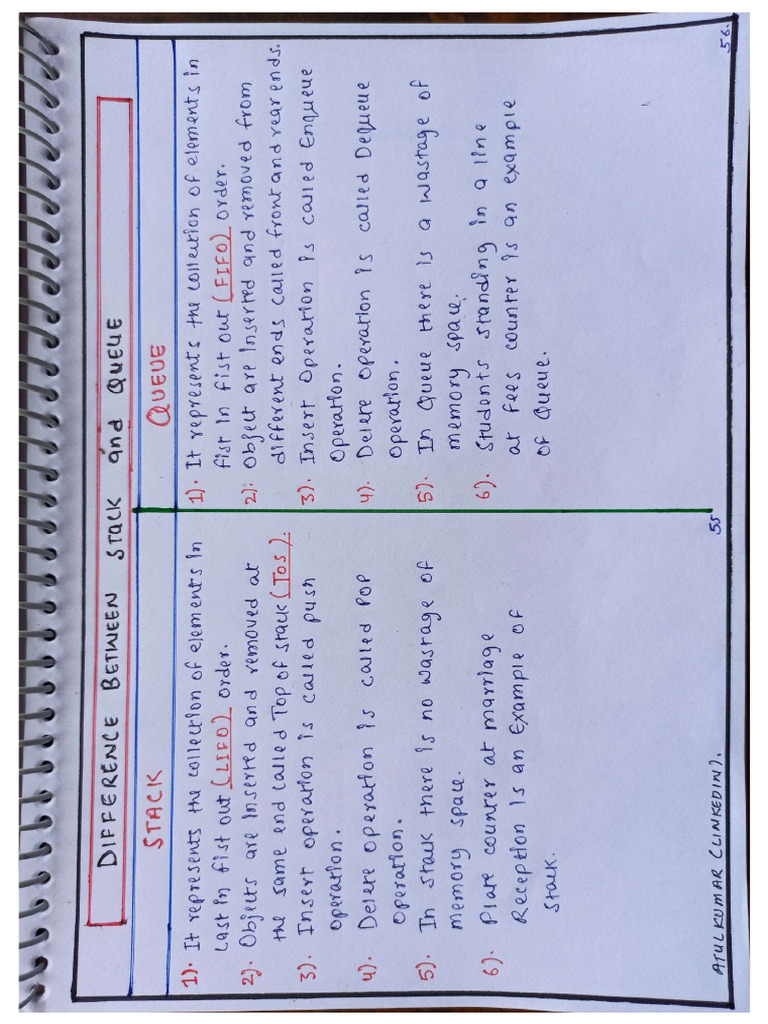 DIFFERENCE BETWEEN STACK and QUEUE
STACK
1). It represents the collection of elements in
Last in fist out (LIFO) order.
2). Objects are inserted and removed at
the same end called Top of stack (TOS).
3). Insert operation is called push
operation.
4). Delete operation is called POP
operation.
5). In stack there is no wastage of
memory space.
6). Plate counter at marriage
Reception is an Example of
Stack.
QUEUE
1). It represents the collection of elements in
fist in fist out (FIFO) order.
2). Object are inserted and removed from
different ends called front and rear ends.
3). Insert Operation is called Enqueue
Operation.
4). Delete operation is called Dequeue
operation.
5). In Queue there is a wastage of
memory space.
6). Students standing in a line
at fees counter is an example
of Queue.
ATUL KUMAR (LINKEDIN).
55
56.